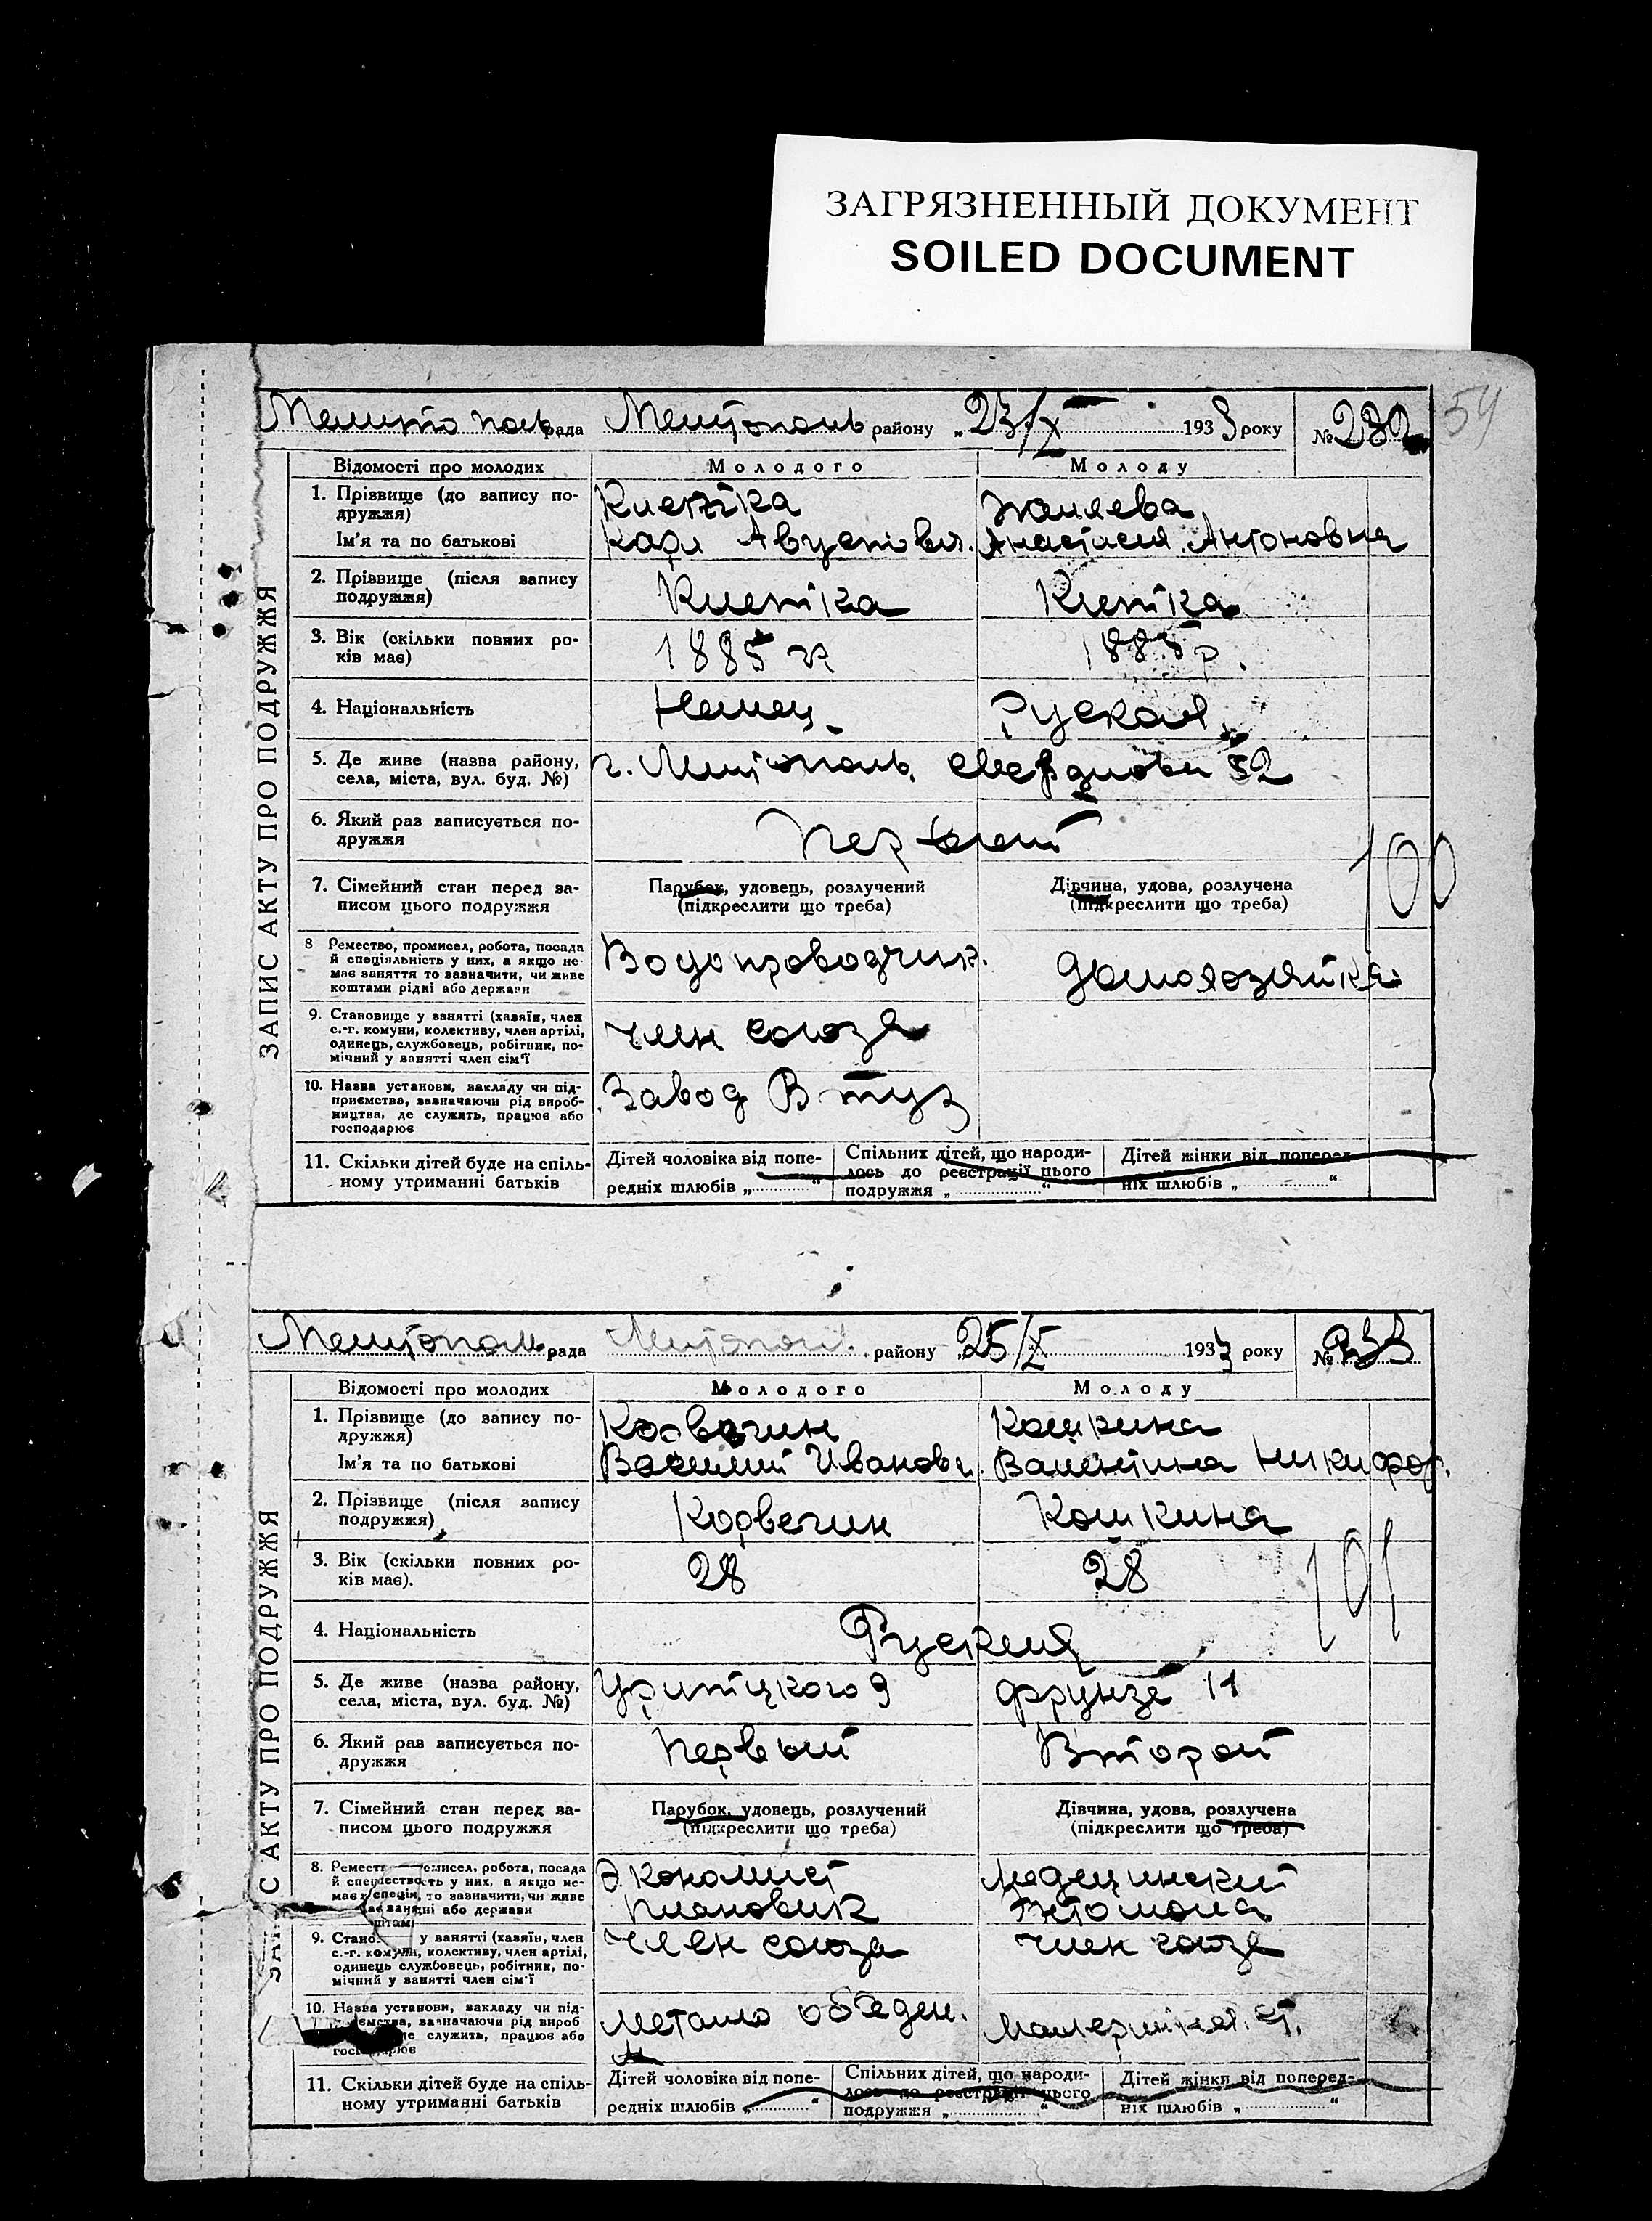 ЗАГРЯЗНЕННЫЙ ДОКУМЕНТ
SOILED DOCUMENT
54
рада Мелитополь району „23/X 193 року №
Відомості про молодих Молодого Молоду
1. Прізвище (до запису подружжя)
Ім'я та по батькові Карл Анастасия Антоновна
2. Прізвище (після запису
подружжя)
3. Вік (скільки повних ро-
ків має) 1885 1885 р.
4. Національність Немец Руская
5. Де живе (назва району,
села, міста, вул. буд. №) г. 52
6. Який раз записується по-
дружжя первый
100
7. Сімейний стан перед за-
писом цього подружжя Парубок, удовець, розлучений Дівчина, удова, розлучена
(підкреслити що треба) (підкреслити що треба)
8 Ремество, промисел, робота, посада
й спеціяльність у них, а якщо не-
має заняття то зазначити, чи живе
коштами рідні або держави Водопроводчик. домохозяйка
9. Становище у занятті (хазяїн, член
с.-г. комуни, колективу, член артілі,
одинець, службовець, робітник, по-
мічний у занятті член сім'ї член союза
10. Назва установи, закладу чи під-
приємства, зазначаючи рід вироб-
ництва, де служить, працює або
господарює Завод
11. Скільки дітей буде на спіль-
ному утриманні батьків Дітей чоловіка від попе-
редніх шлюбів „ “ Спільних дітей, що народи-
лось до реєстрації цього
подружжя „ “ Дітей жінки від поперед-
ніх шлюбів „ “
ЗАПИС АКТУ ПРО ПОДРУЖЖЯ
Мелитополь рада району 25/X 1933 року № 233
Відомості про молодих Молодого Молоду
1. Прізвище (до запису по-
дружжя) Кошкина
Ім'я та по батькові Василий Иванов. Валентина Никифор.
2. Прізвище (після запису
подружжя) Корвечин Кошкина
3. Вік (скільки повних ро-
ків має). 28 28
101
4. Національність Руския
5. Де живе (назва району,
села, міста, вул. буд. №) Урицкого 9 Фрунзе 11
6. Який раз записується по-
дружжя Первый Второй
7. Сімейний стан перед за-
писом цього подружжя Парубок, удовець, розлучений Дівчина, удова, розлучена
(підкреслити що треба) (підкреслити що треба)
8. робота, посада
й у них, а якщо не-
має то зазначити, чи живе
або держави Экономист
плановик
9. у занятті (хазяїн, член
с.-г. комуни, колективу, член артілі,
одинець службовець, робітник, по-
мічний у занятті член сім'ї Член союза член союза
10. Назва установи, закладу чи під-
зазначаючи рід вироб
служить, працює або
Метало обьеден.
11. Скільки дітей буде на спіль-
ному утриманні батьків Дітей чоловіка від попе-
редніх шлюбів „ “ Спільних дітей, що народи-
лось до реєстрації цього
подружжя „ “ Дітей жінки від поперед-
ніх шлюбів „ “
АКТУ ПРО ПОДРУЖЖЯ